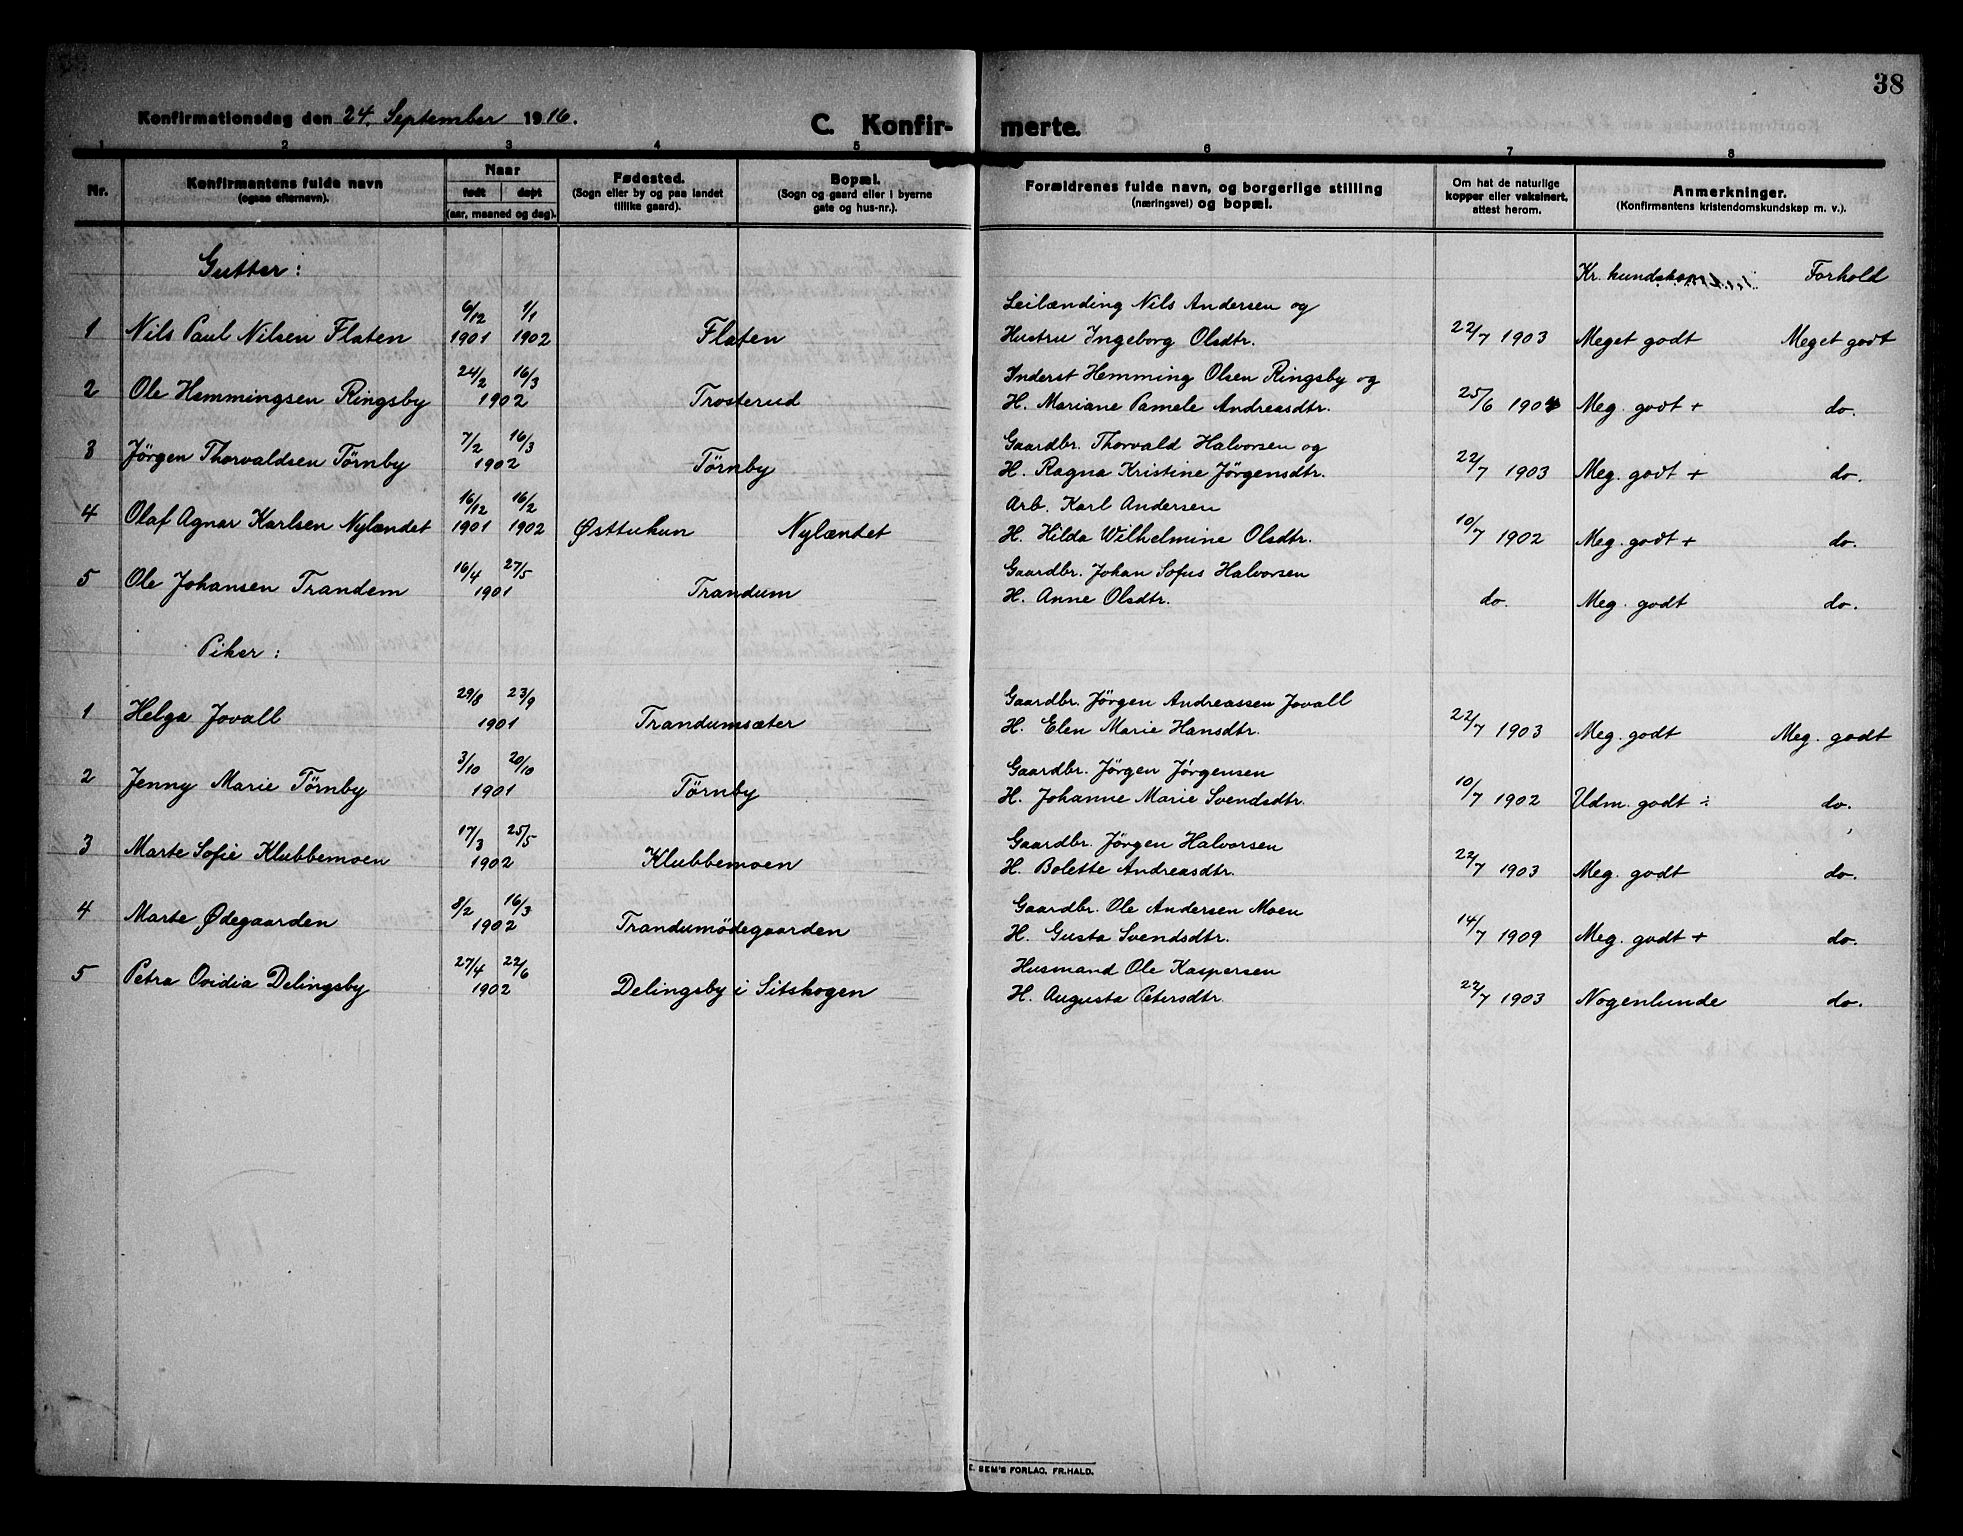 38
Konfirmationsdag den 24. September 1916.
C. Konfir- merte.
1 2 3 4 5 6 7 8
Nr. Konfirmantens fulde navn (ogsaa efternavn). Naar født døpt (aar, maaned og dag). Fødested. (Sogn eller by og paa landet tillike gaard). Bopæl. (Sogn og gaard eller i byerne gate og hus-nr.). Forældrenes fulde navn, og borgerlige stilling (næringsvei) og bopæl. Om hat de naturlige kopper eller vaksinert, attest herom. Anmerkninger. (Konfirmantens kristendomskundskap m. v.).
Gutter: Kr. kundskap Forhold
6/12 1/1 Leilænding Nils Andersen og
1 Nils Paul Nilsen Flaten 1901 1902 Flaten Hustru Ingeborg Olsdtr. 22/7 1903 Meget godt Meget godt
24/2 16/3 Inderst Hemming Olsen Ringsby og
2 Ole Hemmingsen Ringsby 1902 Trosterud H. Mariane Pamele Andreasdtr. 25/6 1904 Meg. godt + do.
7/2 16/3 Gaardbr. Thorvald Halvorsen og
3 Jörgen Thorvaldsen Törnby 1902 Törnby H. Ragna Kristine Jörgensdtr. 22/7 1903 Meg. godt + do.
16/12 16/2 Arb. Karl Andersen
4 Olaf Agnar Karlsen Nylændet 1901 1902 Østtukun Nylændet H. Hilda Wilhelmine Olsdtr. 10/7 1902 Meg. godt + do.
16/4 27/5 Gaardbr. Johan Sofus Halvorsen
5 Ole Johansen Trandem 1901 Trandum H. Anne Olsdtr. do. Meg. godt do.
Piker:
29/8 23/9 Gaardbr. Jörgen Andreassen Jovall
1 Helga Jovall 1901 Trandumsæter H. Elen Marie Hansdtr. 22/7 1903 Meg. godt Meg. godt
3/10 20/10 Gaardbr. Jörgen Jörgensen
2 Jenny Marie Törnby 1901 Törnby H. Johanne Marie Svendsdtr. 10/7 1902 Udm. godt ÷ do.
17/3 25/5 Gaardbr. Jörgen Halvorsen
3 Marte Sofie Klubbemoen 1902 Klubbemoen H. Bolette Andreasdtr. 22/7 1903 Meg. godt do.
8/2 16/3 Gaardbr. Ole Andersen Moen
4 Marte Ødegaarden 1902 Trandumödegaarden H. Gusta Svendsdtr. 14/7 1909 Meg. godt + do.
27/4 22/6 Husmand Ole Kaspersen
5 Petra Ovidia Delingsby 1902 Delingsby i Sitskogen H. Augusta Petersdtr. 22/7 1903 Nogenlunde do.
E. SEM'S FORLAG, FR.HALD.